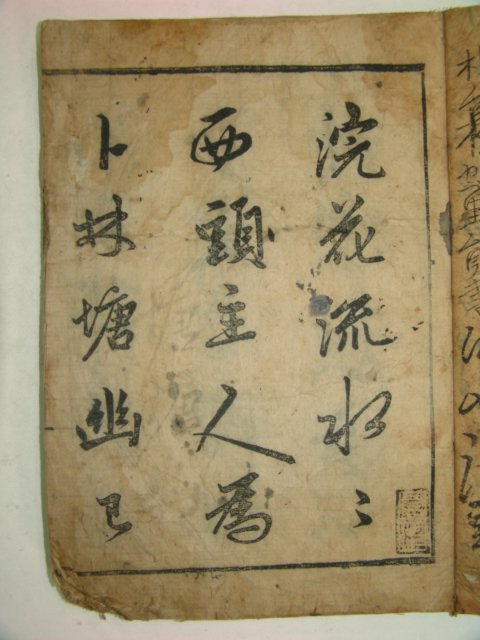 浣花流水〻
西頭主人為
卜林塘幽已